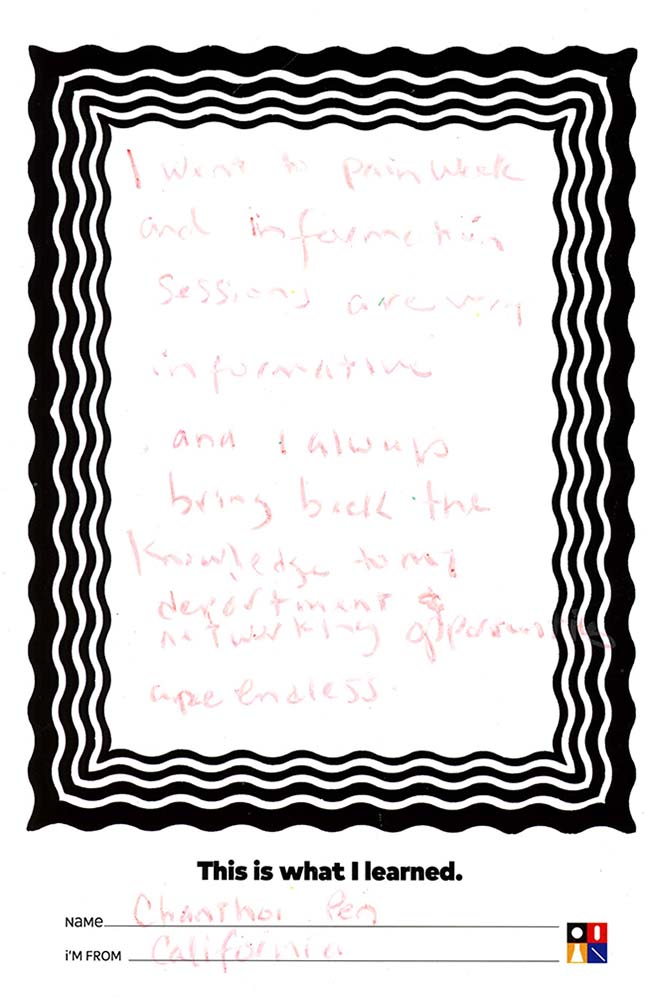 I went to pain week
and information
sessions are very
informative
and I always
bring back the
knowledge to my
department &
networking opportunities
are endless.
This is what I learned.
Name Chanthoi Pen
I'M FROM California